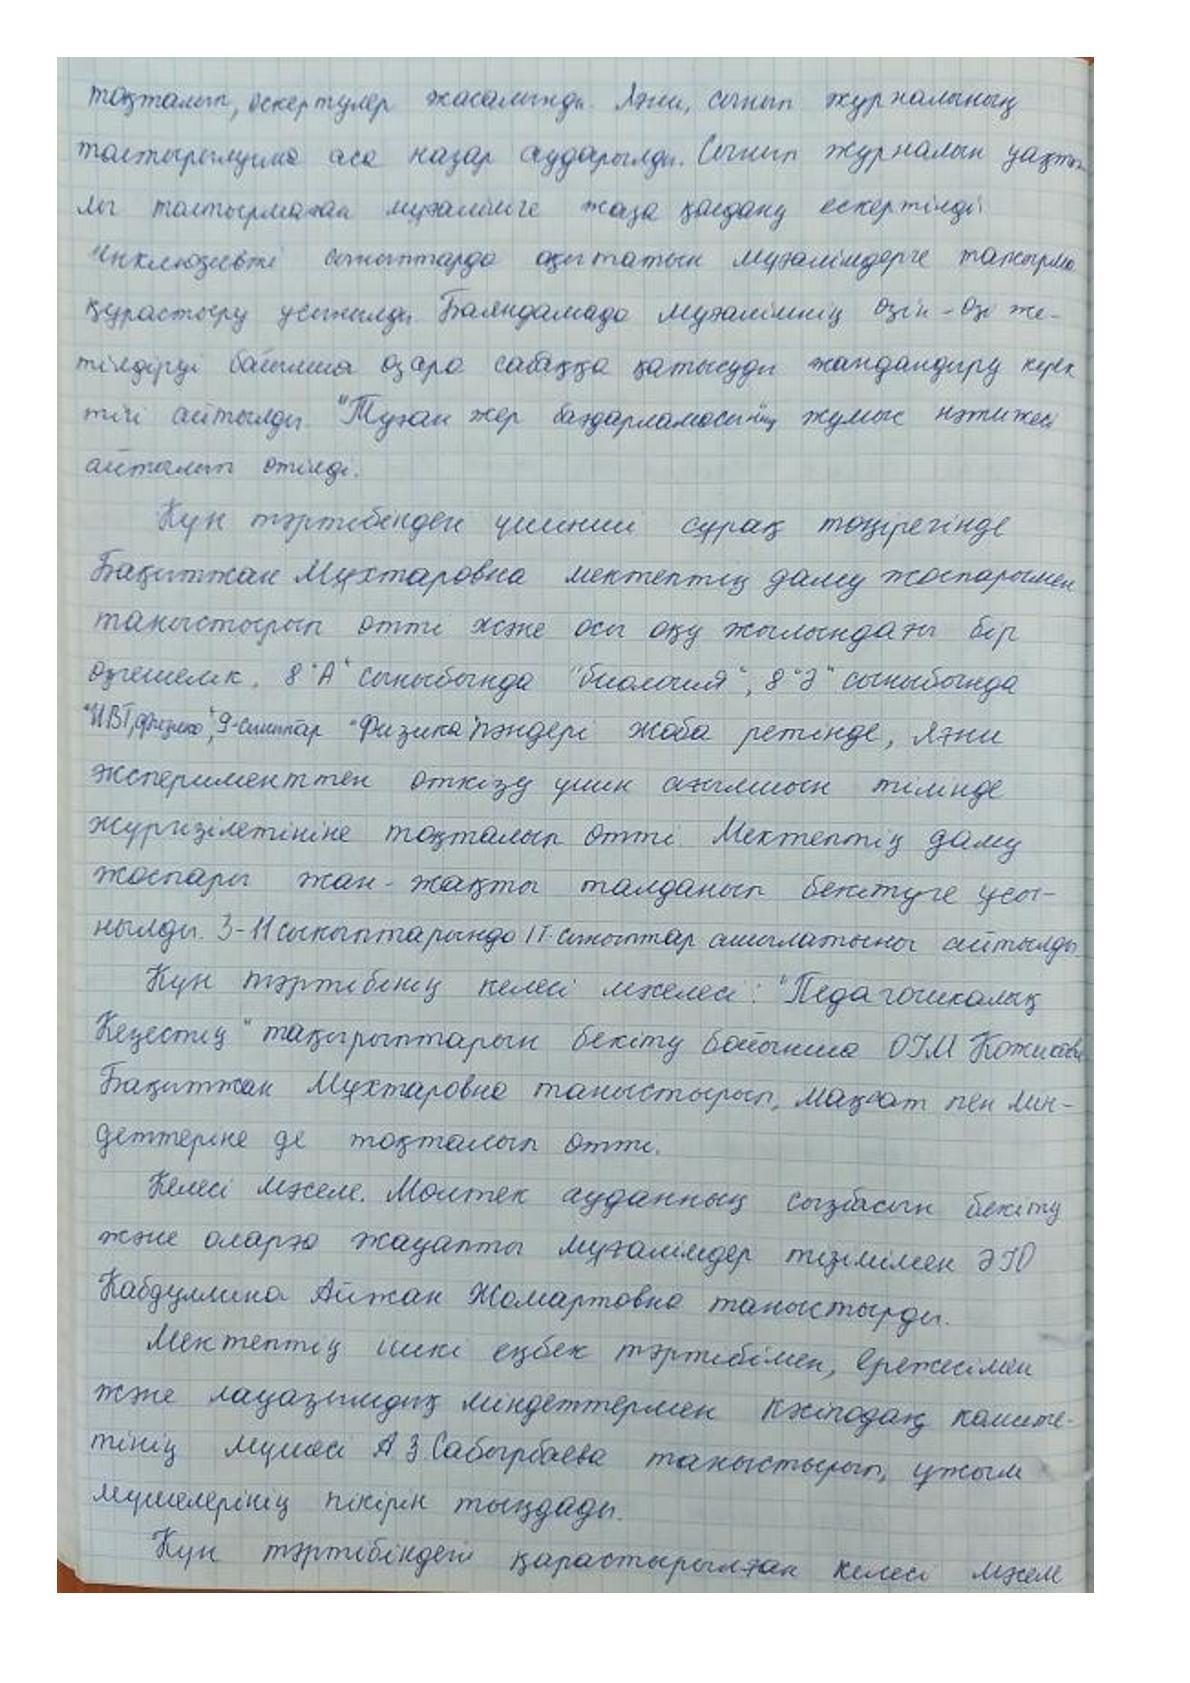 тоқталып, ескертулер жасалынды. Яғни, сынып журналының
толтырылуына аса назар аударылды. Сынып журналын уақты-
лы толтырмаған мұғалімге жаза қолдану ескертілді
Инклюзивті сыныптарда оқытатын мұғалімдерге тапсырма
құрастыру ұсынылды. Баяндамада мұғалімнің өзін-өзі же-
тілдіруі бойынша өзара сабаққа қатысуды жандандыру керек
тігі айтылды. "Туған жер бағдарламасының жұмыс нәтижесі
айтылып өтілді.
Күн тәртібінден үшінші сұрақ төңірегінде
Бақытжан Мұхтаровна мектептің даму жоспарымен
таныстырып өтті және осы оқу жылындағы бір
өзгешелік, 8 "А" сыныбында "биология", 8 "Ә" сыныбында
"ИВТ, физика", 9-сыныптар "Физика" пәндері жоба ретінде, яғни
эксперименттен өткізу үшін ағылшын тілінде
жүргізілетініне тоқталып өтті. Мектептің даму
жоспары жан-жақты талданып бекітуге ұсы-
нылды. 3-11 сыныптарында IT-сыныптар ашылатыны айтылды.
Күн тәртібінің келесі мәселесі: "Педагогикалық
Кеңестің" тақырыптарын бекіту бойынша ОІМ Кожикова
Бақытжан Мұхтаровна таныстырып, мақсат пен мін-
деттеріне де тоқталып өтті.
Келесі мәселе. Мөлтек ауданның сызбасын бекіту
және оларға жауапты мұғалімдер тізімімен ӘЮ
Кабдуллина Айжан Жомартовна таныстырды.
Мектептің ішкі еңбек тәртібімен, ережесімен
және лауазымдық міндеттермен кәсіподақ комите-
тінің мүшесі А.З.Сабырбаева таныстырып, ұжым
мүшелерінің пікірін тыңдады.
Күн тәртібіндегі қарастырылған келесі мәселе